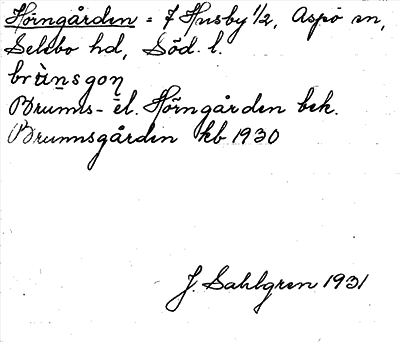 Hörngården = 7 Husby 1/2, Aspö sn,
Selebo hd, Söd. l.
brùnsgoṇ
Brunns- el. Hörngården bek.
Brunnsgården kb 1930
J. Sahlgren 1931